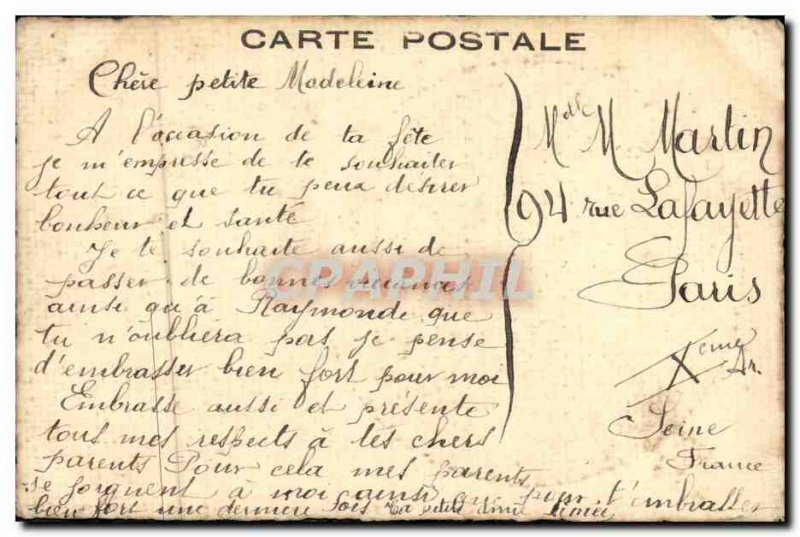 CARTE POSTALE
Chère petite Madeleine
A l'occasion de ta fête
je m'empresse de te souhaiter
tout ce que tu peux désirer
bonheur et santé
Je te souhaite aussi de
passer de bonnes vacances
ainsi qu'à Raymonde que
tu n'oubliera pas je pense
d'embrasser bien fort pour moi
Embrasse aussi et présente
tous mes respects à tes chers
parents Pour cela mes parents
se joignent à moi ainsi que pour t'embrasser
bien fort une dernière fois Ta petite amie
Mdlle M. Martin
94 rue Lafayette
Paris
Xème Ar.
Seine
France
CPAPHIL